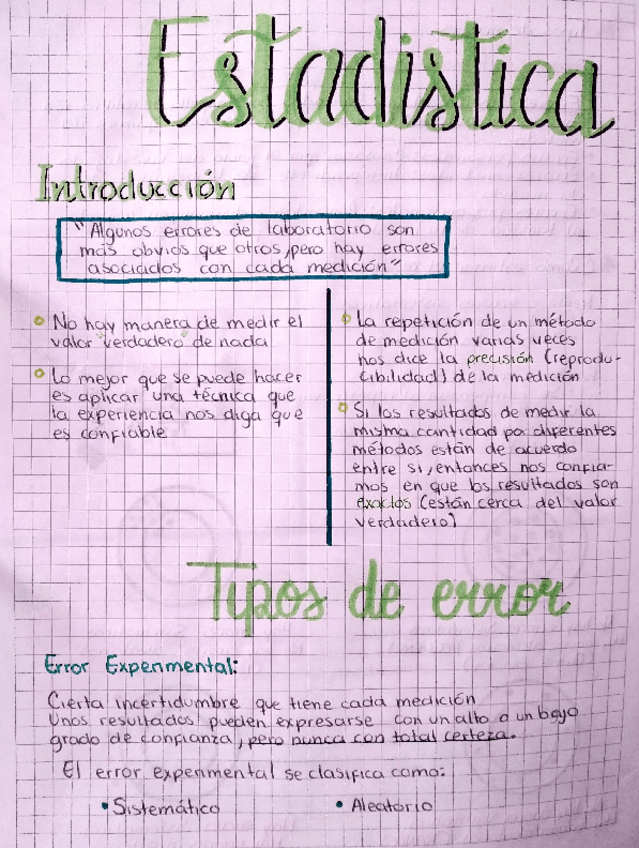 Estadistica
Introducción
"Algunos errores de laboratorio son
más obvios que otros, pero hay errores
asociados con cada medición"
No hay manera de medir el
valor "verdadero" de nada
Lo mejor que se puede hacer
es aplicar una técnica que
la experiencia nos diga que
es confiable
La repetición de un método
de medición varias veces
nos dice la precisión (reprodu-
cibilidad) de la medición
Si los resultados de medir la
misma cantidad por diferentes
métodos están de acuerdo
entre si, entonces nos confia-
mos en que los resultados son
exactos (están cerca del valor
verdadero)
Tipos de error
Error Experimental:
Cierta incertidumbre que tiene cada medición
Unos resultados pueden expresarse con un alto o un bajo
grado de confianza, pero nunca con total certeza.
El error experimental se clasifica como:
• Sistemático
• Aleatorio